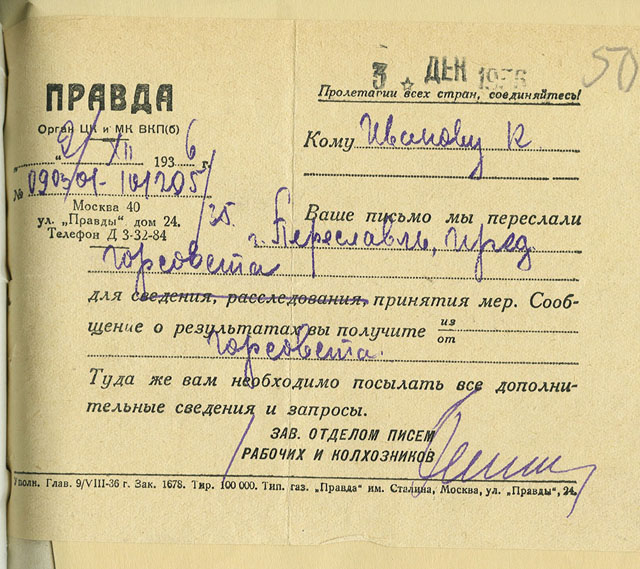 50
3 ДЕК 1936
ПРАВДА
Орган ЦК и МК ВКП(б)
"2/XII 1936 г.
№ 090301-101205/35.
Москва 40
ул. „Правды" дом 24.
Телефон Д 3-32-84
Пролетарии всех стран, соединяйтесь!
Кому Иванову К
Ваше письмо мы переслали
г. Переславль, пред.
горсовета
для сведения, расследования, принятия мер. Сооб-
щение о результатах вы получите из
от
горсовета.
Туда же вам необходимо посылать все дополни-
тельные сведения и запросы.
ЗАВ. ОТДЕЛОМ ПИСЕМ
РАБОЧИХ И КОЛХОЗНИКОВ
Уполн. Глав. 9/VIII-36 г. Зак. 1678. Тир. 100 000. Тип. газ. „Правда" им. Сталина, Москва, ул. „Правды", 24.